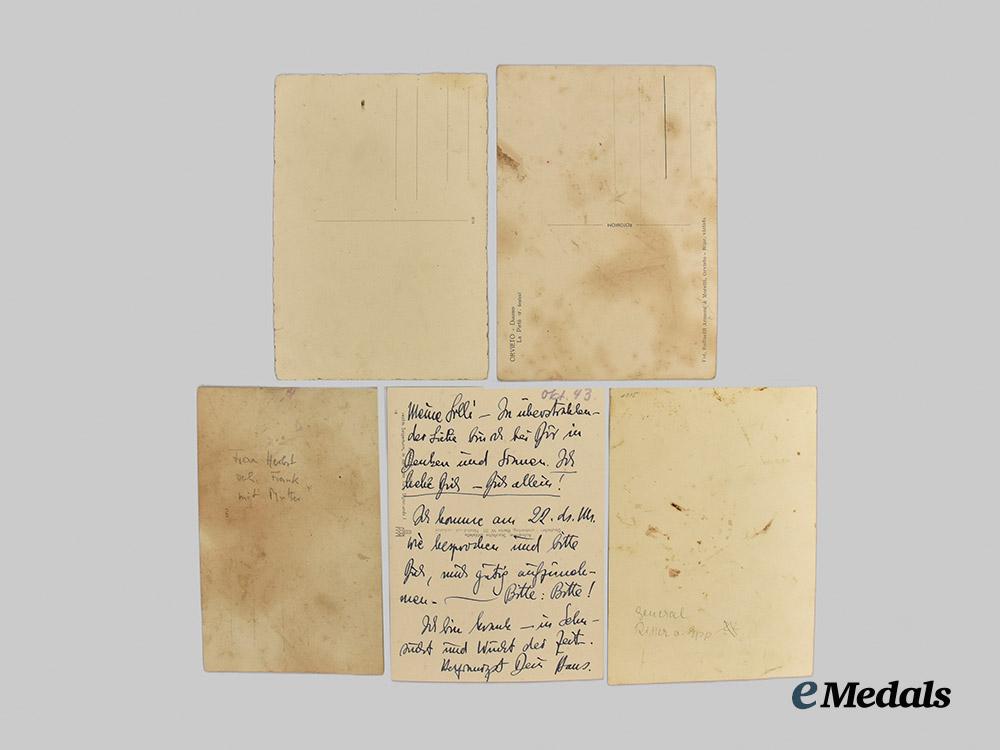 ROTOFOM
ORVIETO - Duomo
La Pietà
Fot. Raffaelli Armoni & Moretti, Orvieto - Ripr. vietata
Frau Herbst
geb. Frank
mit Mutter
Okt. 43.
Meine Lilli — In überstrahlen-
der Liebe bin ich bei Dir in
Denken und Sinnen. Ich
liebe Dich — Dich allein!
Ich komme am 22. ds. Ms.
wie besprochen und bitte
Dich, mich gütig aufzuneh-
men. — Bitte: Bitte!
Ich bin krank — in Sehn-
sucht und Wucht der Zeit.
Dein Hans.
General
Ritter v. Epp
eMedals